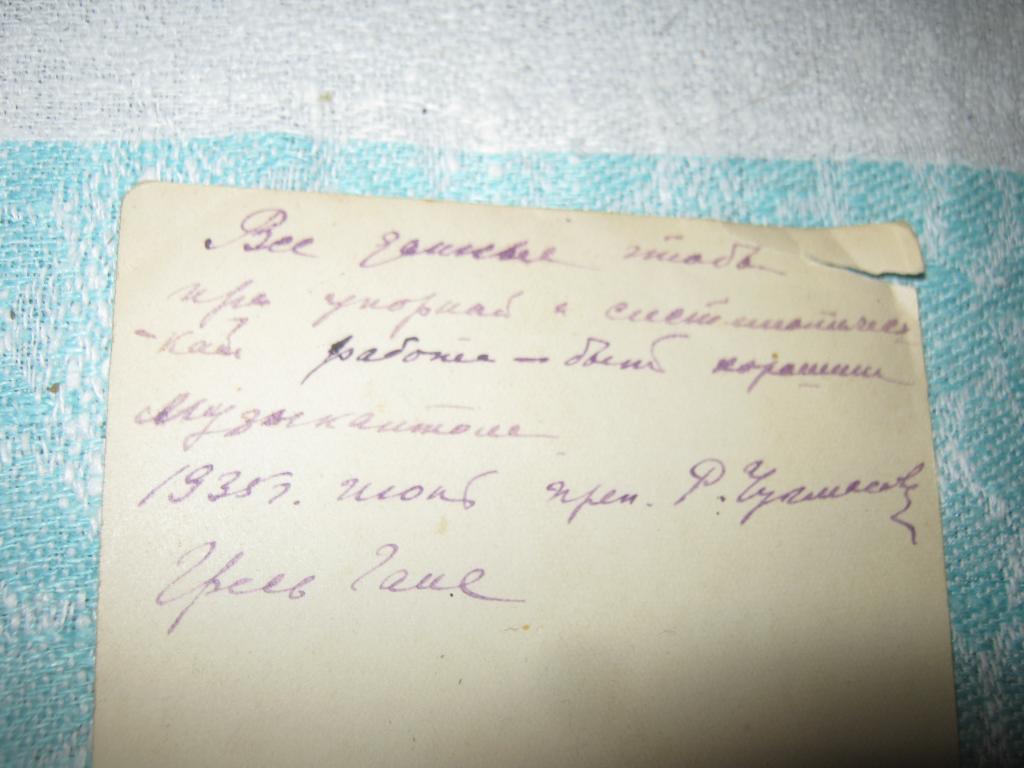 Все данные чтобы
при упорной и систематичес
-кой работе - быть хорошим
музыкантом
1935г. июнь преп. Р.
Гале